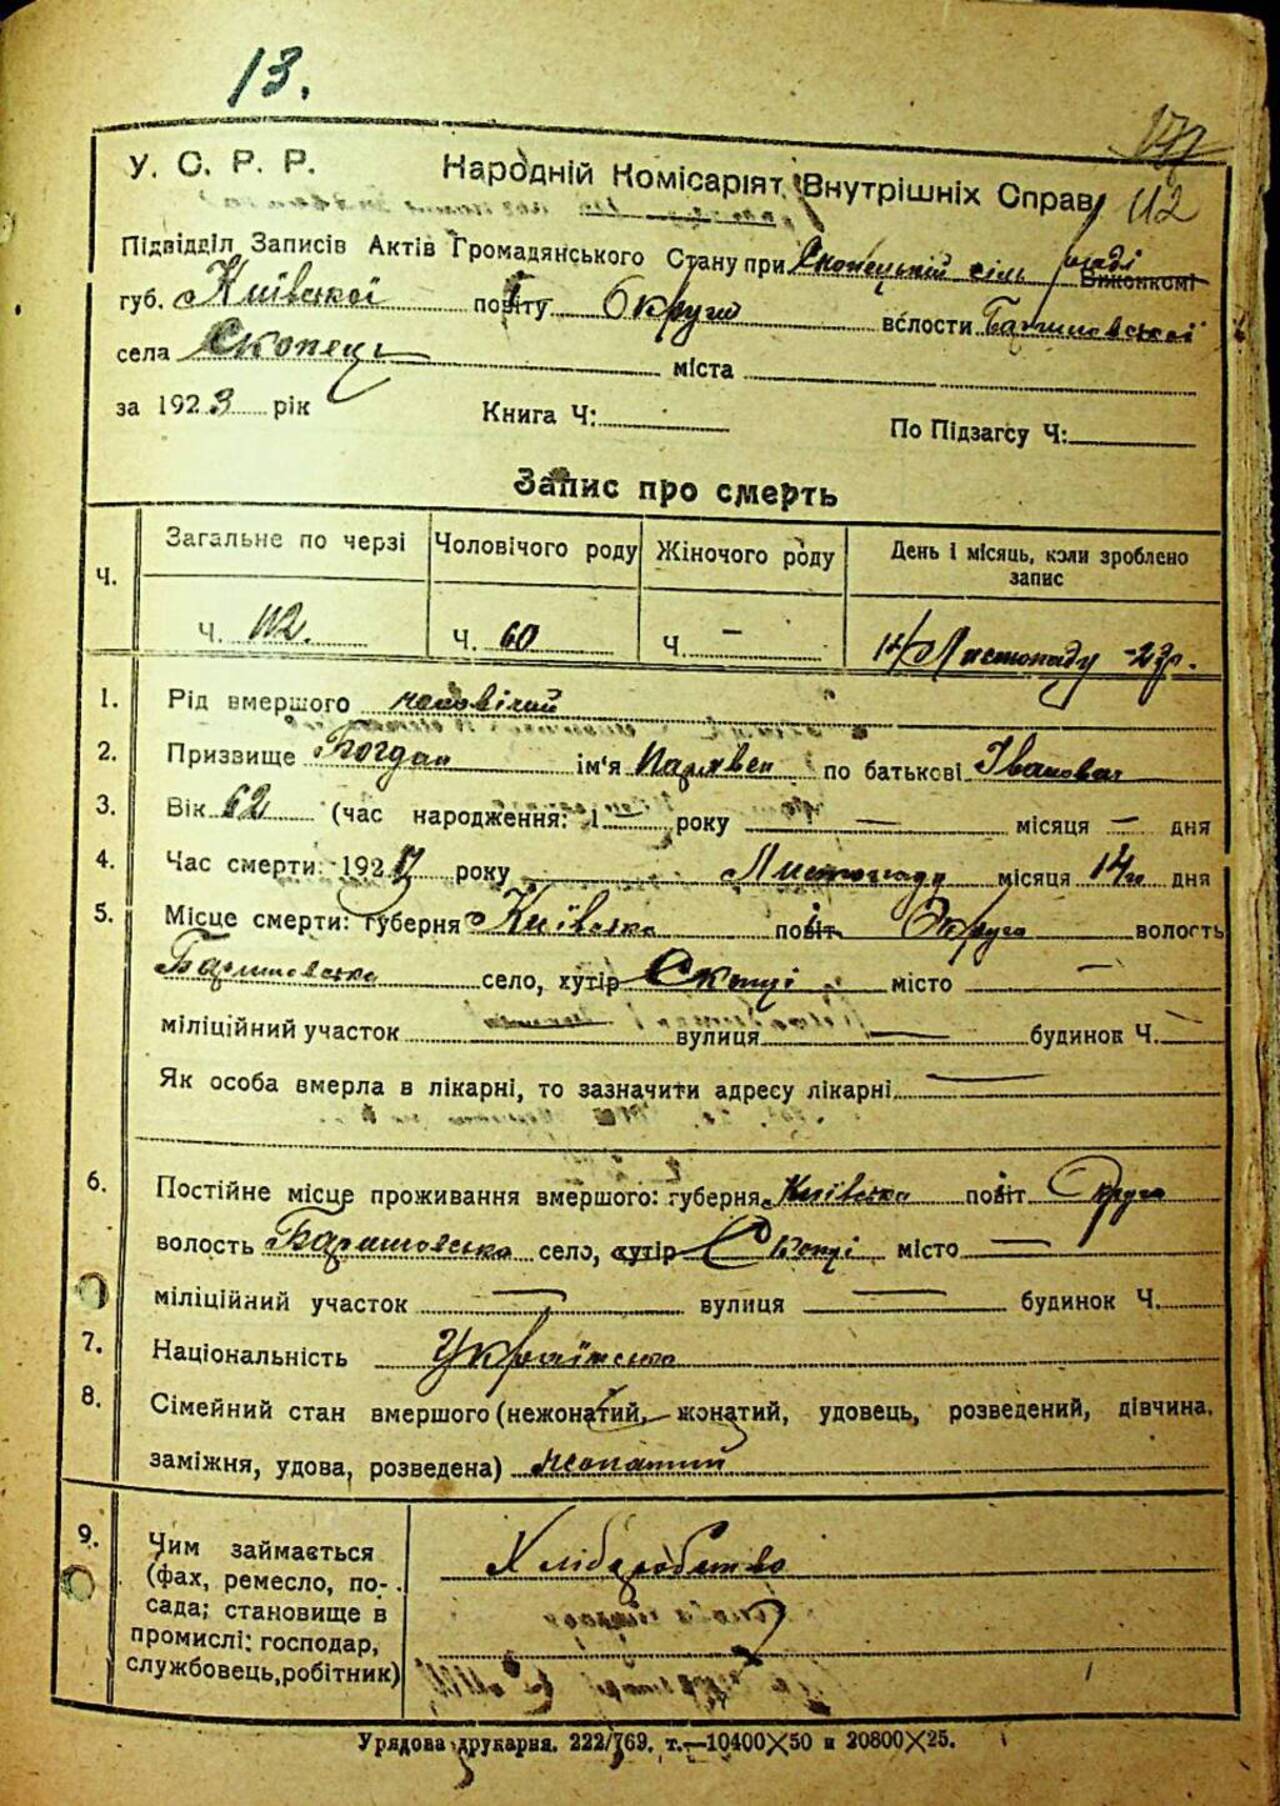 13.
У. С. Р. Р. Народній Комісаріят Внутрішніх Справ 112
Підвідділ Записів Актів Громадянського Стану при Скопецькій сіль раді Виконкомі
губ. Київської повіту Округи волости Баришовської
села Скопець міста
за 1923 рік Книга Ч: По Підзагсу Ч:
Запис про смерть
Ч. Загальне по черзі Чоловічого роду Жіночого роду День і місяць, коли зроблено запис
Ч. 112. Ч. 60 Ч. — 14/Листопаду -23р.
1. Рід вмершого чоловічий
2. Призвище Богдан ім'я по батькові Іванович
3. Вік 62 (час народження: 1 — року — місяця — дня
4. Час смерти: 1923 року Листопаду місяця 14го дня
5. Місце смерти: губерня Київська повіт Округа волость
Баришовська село, хутір Скопці місто —
міліційний участок — вулиця — будинок Ч. —
Як особа вмерла в лікарні, то зазначити адресу лікарні —
6. Постійне місце проживання вмершого: губерня Київська повіт Округа
волость Баришовська село, хутір Скопці місто —
міліційний участок — вулиця — будинок Ч.
7. Національність Українська
8. Сімейний стан вмершого (нежонатий, жонатий, удовець, розведений, дівчина,
заміжня, удова, розведена) жонатий
9. Чим займається Хліборобство
(фах, ремесло, по-
сада; становище в
промислі: господар,
службовець, робітник)
Урядова друкарня. 222/769. т.—10400×50 и 20800×25.